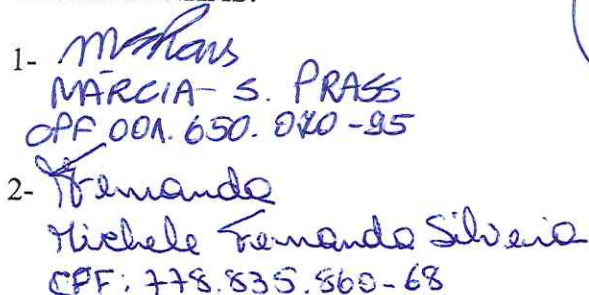 1-
MÁRCIA S. PRASS
CPF 001.650.070-95
2- Fernanda
Michele Fernanda Silveira
CPF: 778.835.860-68